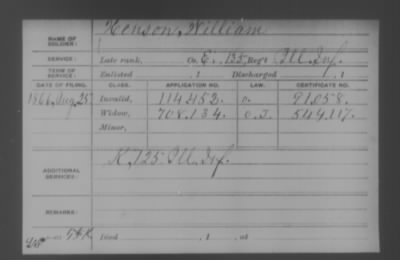 NAME OF SOLDIER: Henson, William
SERVICE: Late rank, Co. E, 135 Reg't Ill. Inf.
TERM OF SERVICE: Enlisted , 1 Discharged , 1
DATE OF FILING. CLASS. APPLICATION NO. LAW. CERTIFICATE NO.
1866, Aug. 25 Invalid, 114452. O. 91.058.
Widow, 708.134. O.I. 549.117.
Minor,
ADDITIONAL SERVICES: K, 125 Ill. Inf.
REMARKS:
Died , 1 , at